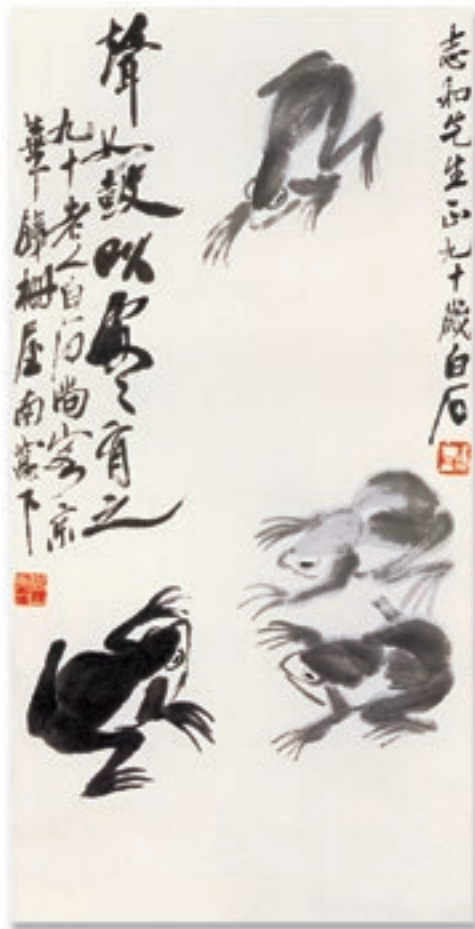 志和先生正九十歲白石
聲如鼓吹處處有之
九十老人白石尚客京
華鐵柵屋南窗下